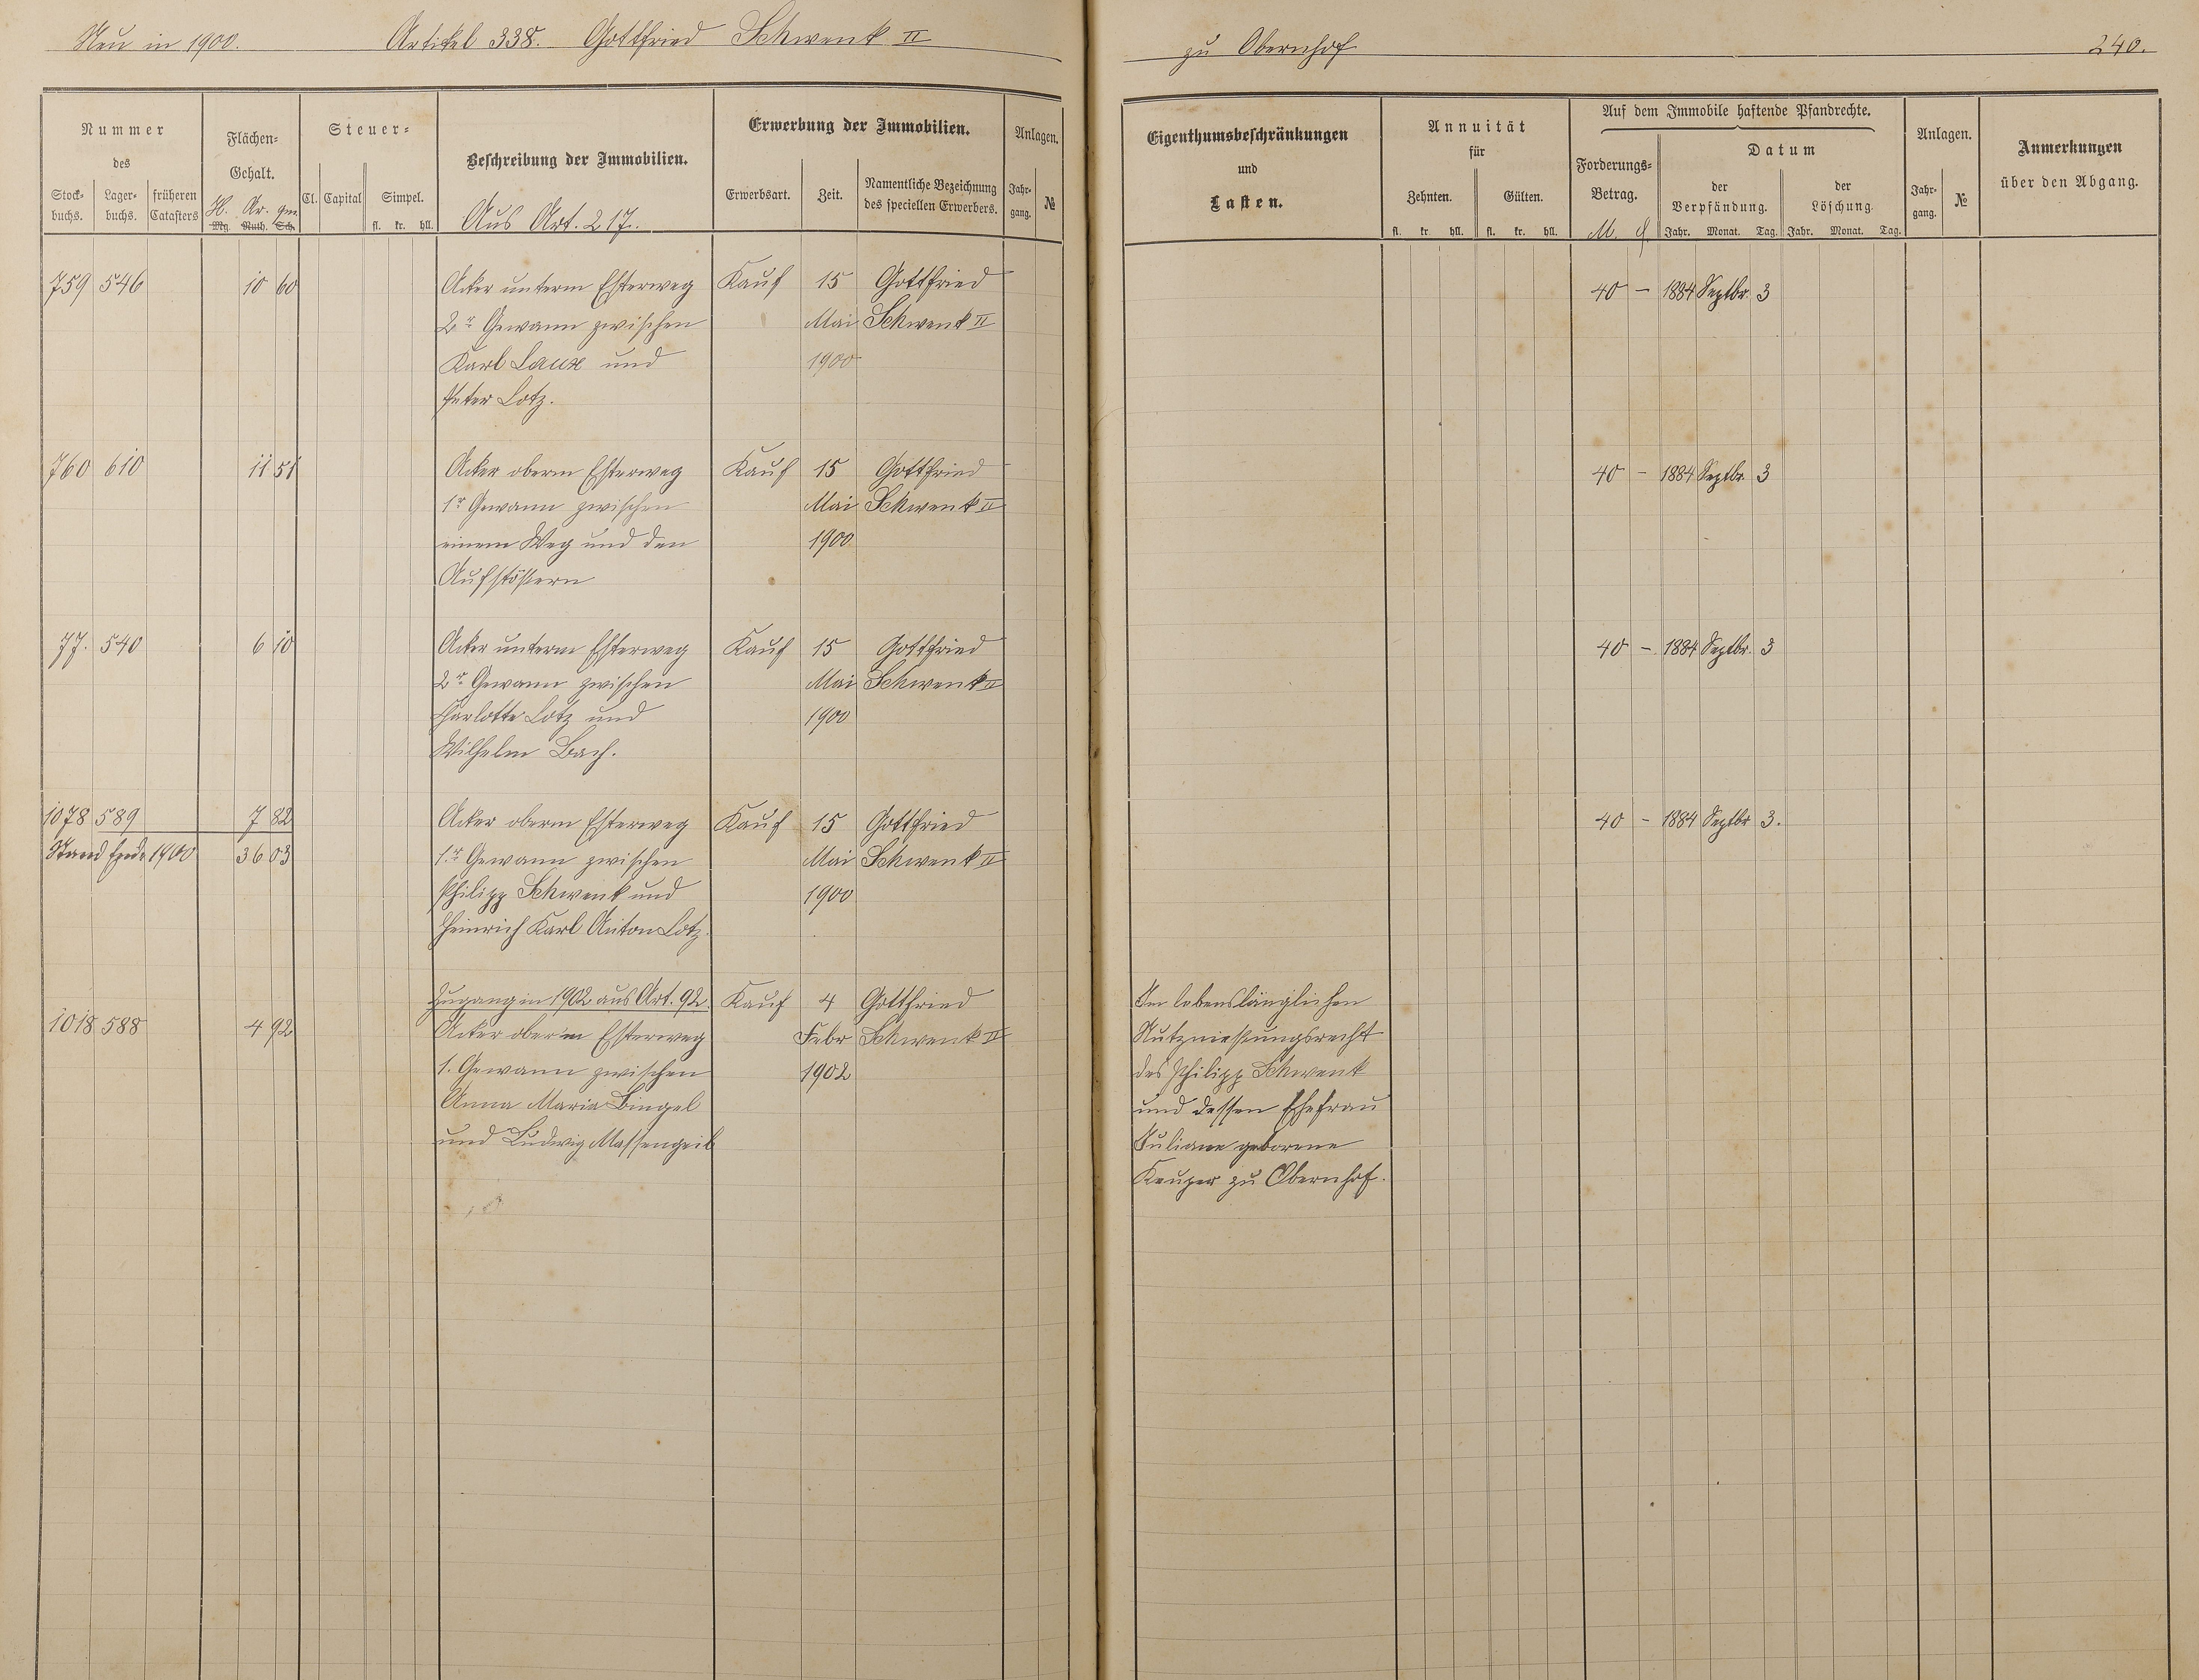 Neu in 1900. Artikel 338. Gottfried Schwenk II zu Obernhof 240.
Nummer
des
Stock-buchs. Lager-buchs. früheren Catasters
Flächen-Gehalt.
H. Ar. qm
Mg. Ruth. Sch.
Steuer-
Cl. Capital Simpel.
fl. kr. hll.
Beschreibung der Immobilien.
Aus Art. 217.
Erwerbung der Immobilien.
Erwerbsart. Zeit. Namentliche Bezeichnung des speciellen Erwerbers.
Anlagen.
Jahr-gang. №
Eigenthumsbeschränkungen
und
Lasten.
Annuität
für
Zehnten. Gülten.
fl. kr. hll. fl. kr. hll.
Auf dem Immobile haftende Pfandrechte.
Forderungs-Betrag.
M. ₰
Datum
der Verpfändung. der Löschung.
Jahr. Monat. Tag. Jahr. Monat. Tag.
Anlagen.
Jahr-gang. №
Anmerkungen
über den Abgang.
759 546 10 60 Acker unterm Esterweg Kauf 15 Gottfried 40 – 1884 Septbr. 3
2r Gewann zwischen Mai Schwenk II
Karl Laux und 1900
Peter Lotz.
760 610 11 51 Acker oberm Esterweg Kauf 15 Gottfried 40 – 1884 Septbr. 3
1r Gewann zwischen Mai Schwenk II
einem Weg und den 1900
Aufstößern
77. 540 6 10 Acker unterm Esterweg Kauf 15 Gottfried 40 – 1884 Septbr. 3
2r Gewann zwischen Mai Schwenk II
Charlotte Lotz und 1900
Wilhelm Bach.
1078 589 7 82 Acker oberm Esterweg Kauf 15 Gottfried 40 – 1884 Septbr 3.
Stand Ende 1900 36 03 1.r Gewann zwischen Mai Schwenk II
Philipp Schwenk und 1900
Heinrich Karl Anton Lotz.
Zugang in 1902 aus Art. 92. Kauf 4 Gottfried Im lebenslänglichen
1018 588 4 92 Acker ober'm Esterweg Febr Schwenk II Nutznießungsrecht
1. Gewann zwischen 1902 des Philipp Schwenk
Anna Maria Bingel und dessen Ehefrau
und Ludwig Massengeil Juliane geborene
Keuper zu Obernhof.